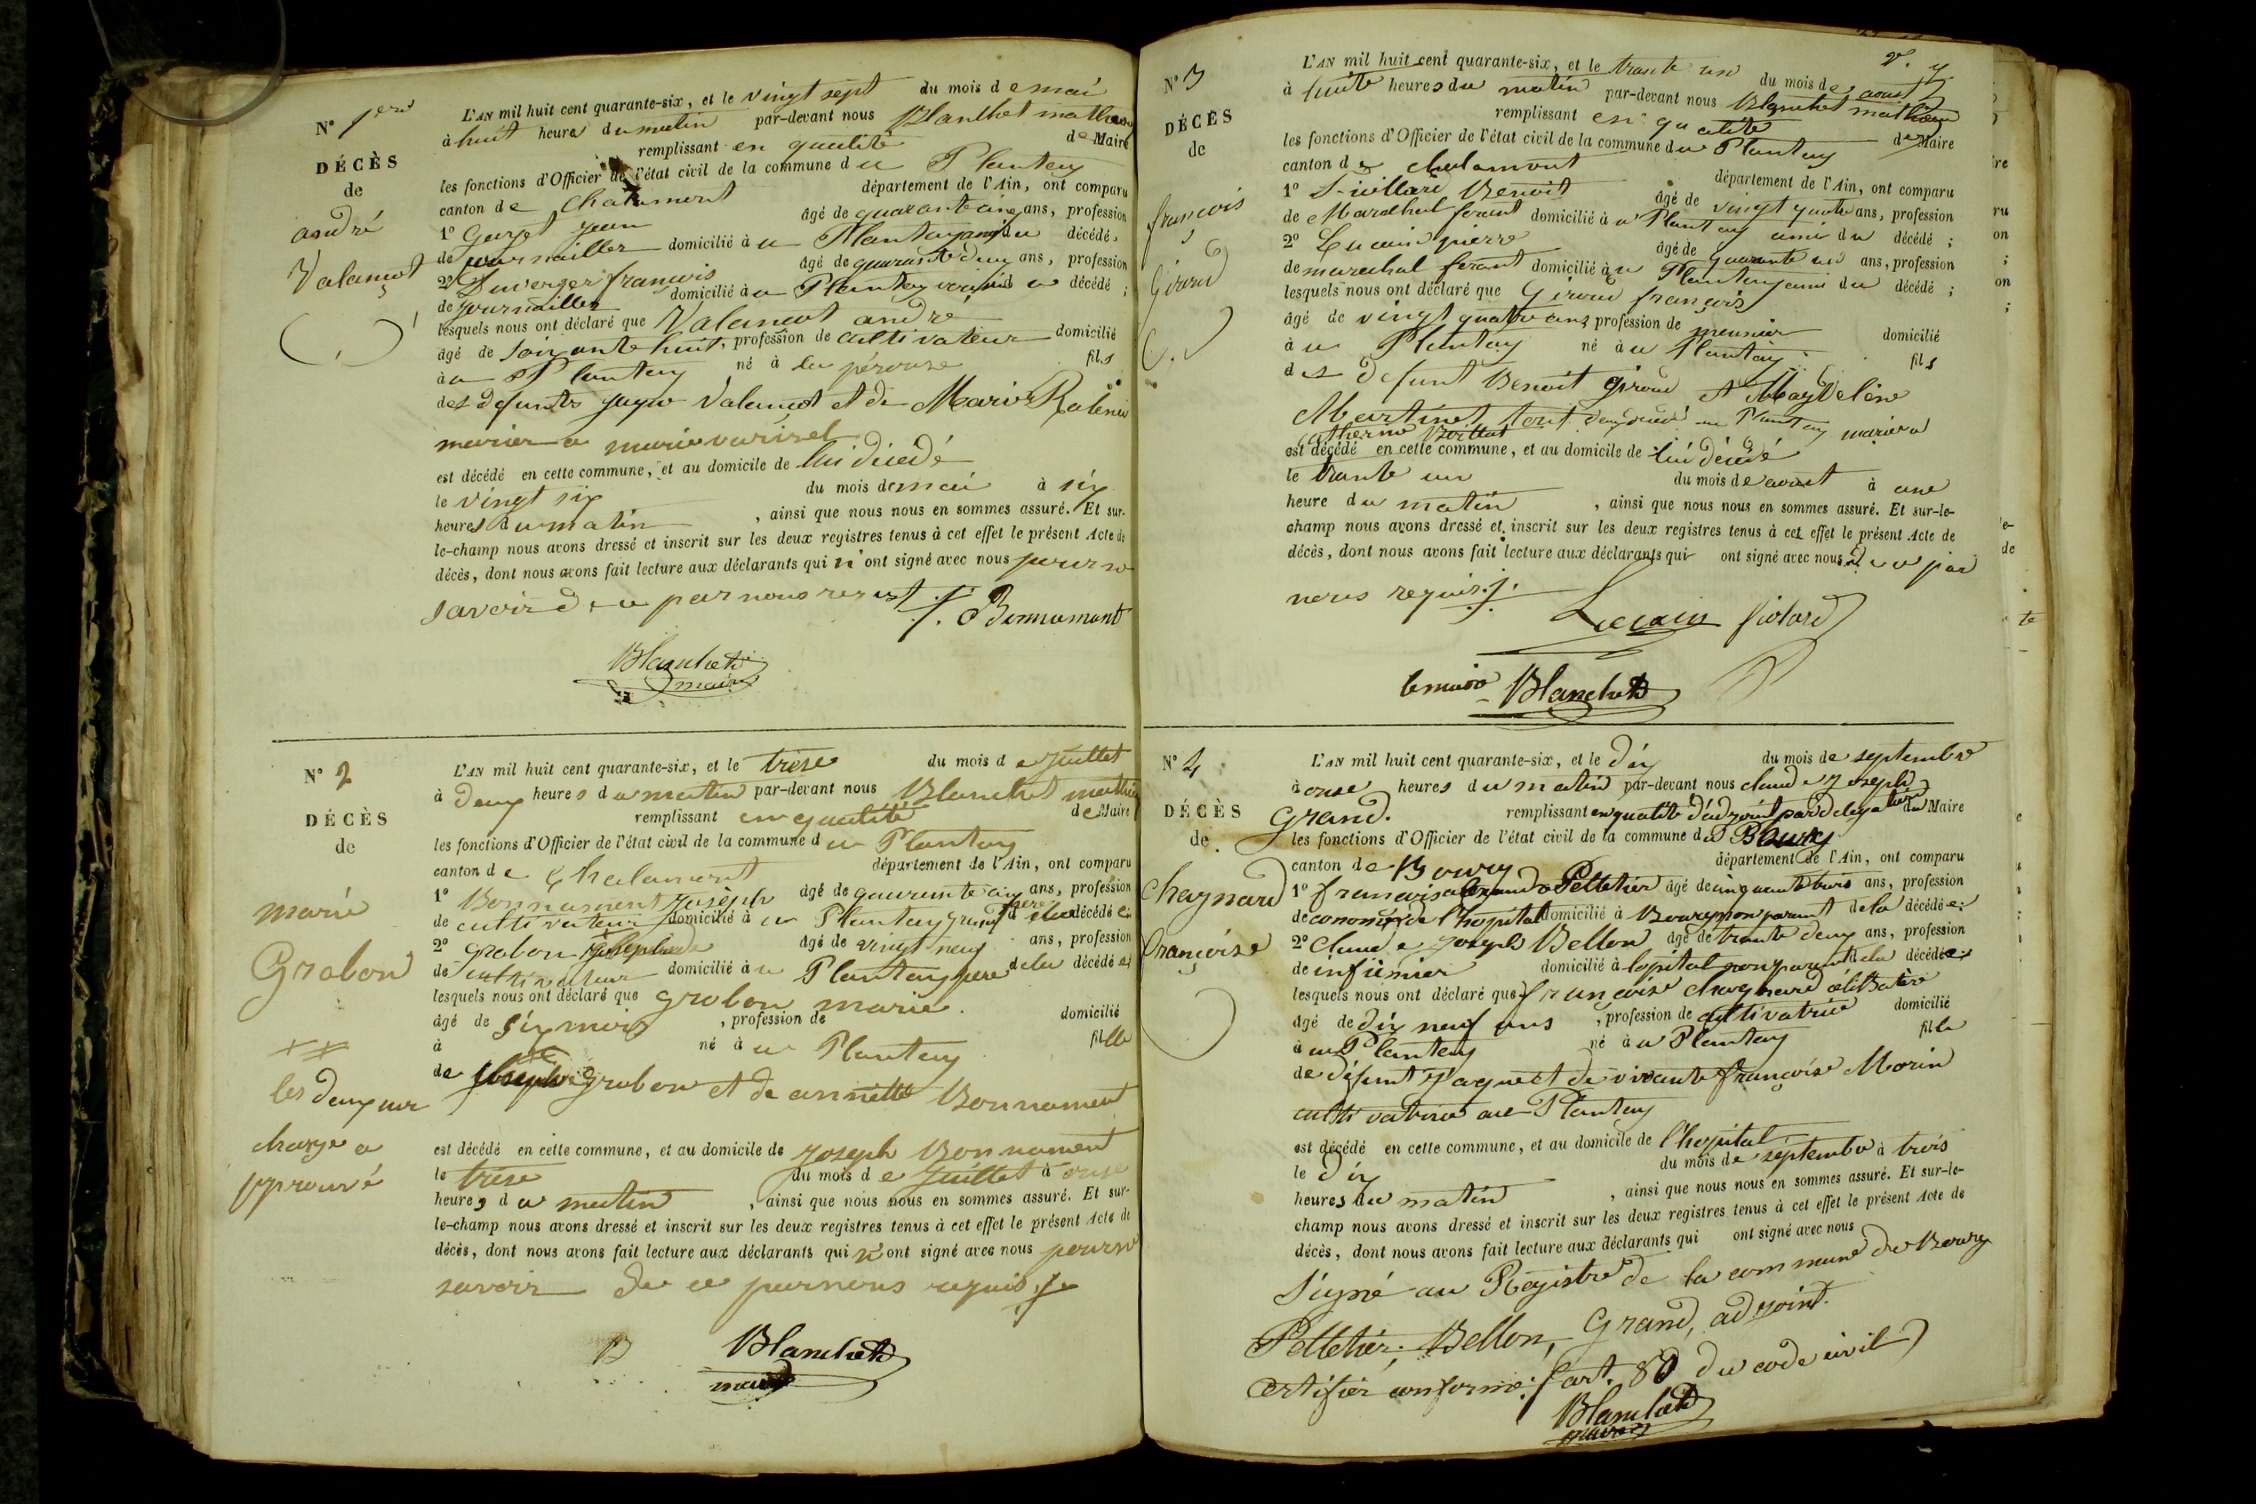 N° 1er
DÉCÈS
de
andré
Valançot
L'AN mil huit cent quarante-six, et le vingt sept du mois de mai
à huit heure du matin par-devant nous Blanchet mathieu
remplissant en qualité de Maire
les fonctions d'Officier de l'état civil de la commune du Plantay
canton de Chalamont département de l'Ain, ont comparu
1° jean âgé de quarante cinq ans, profession
de journailler domicilié à u Plantay ami du décédé,
2° Duverger françois âgé de quarante deux ans, profession
de journailler domicilié à u Plantay voisin du décédé ;
lesquels nous ont déclaré que Valançot andré
âgé de soixante huit, profession de cultivateur domicilié
à u Plantay né à la pérouse fils
des defunts Valançot et de Marie
marier a marie
est décédé en cette commune, et au domicile de lui décédé
le vingt six du mois de mai à six
heures du matin, ainsi que nous nous en sommes assuré. Et sur-
le-champ nous avons dressé et inscrit sur les deux registres tenus à cet effet le présent Acte de
décès, dont nous avons fait lecture aux déclarants qui n'ont signé avec nous pour ne
savoir de ce par nous requis
Blanchet
maire
N° 2
DÉCÈS
de
marie
Grobon
les deux sur
charge a
pprouvé
L'AN mil huit cent quarante-six, et le trèse du mois de Juillet
à deux heures du matin par-devant nous Blanchet mathieu
remplissant en qualité de Maire
les fonctions d'Officier de l'état civil de la commune du Plantay
canton de Chalamont département de l'Ain, ont comparu
1° Bonnament Joseph âgé de quarante cinq ans, profession
de cultivateur domicilié à u Plantay grand père de la décédé e
2° grobon âgé de vingt neuf ans, profession
de cultivateur domicilié à u Plantay père de la décédé e
lesquels nous ont déclaré que grobon marie
âgé de six mois, profession de domicilié
à né à u Plantay fille
de Joseph grobon et de annette Bonnament
est décédé en cette commune, et au domicile de Joseph Bonnament
le trèse du mois de Juillet à onse
heures du matin, ainsi que nous nous en sommes assuré. Et sur-
le-champ nous avons dressé et inscrit sur les deux registres tenus à cet effet le présent Acte de
décès, dont nous avons fait lecture aux déclarants qui n'ont signé avec nous pour ne
savoir de ce par nous requis
Blanchet
maire
N° 3
DÉCÈS
de
françois
Giroud
L'AN mil huit cent quarante-six, et le trante un du mois de aoust
à huite heures du matin par-devant nous Blanchet mathieu
remplissant en qualité de Maire
les fonctions d'Officier de l'état civil de la commune du Plantay
canton de chalamont département de l'Ain, ont comparu
1° Benoit âgé de vingt quatre ans, profession
de Maréchal ferant domicilié à u Plantay ami du décédé ;
2° Lucain pierre âgé de quarante un ans, profession
de marechal ferant domicilié à u Plantay ami du décédé ;
lesquels nous ont déclaré que Giroud françois
âgé de vingt quatre ans profession de meunier domicilié
à u Plantay né à u Plantay fils
des defunt Benoit giroud et Magdelène
Martinet au Plantay marier a
catherine
est décédé en cette commune, et au domicile de lui décédé
le trante un du mois de aoust à une
heure du matin, ainsi que nous nous en sommes assuré. Et sur-le-
champ nous avons dressé et inscrit sur les deux registres tenus à cet effet le présent Acte de
décès, dont nous avons fait lecture aux déclarants qui ont signé avec nous de ce par
nous requis
Lucain
le maire Blanchet
N° 4
DÉCÈS
de
Chaynard
françoise
L'AN mil huit cent quarante-six, et le dix du mois de septembre
à onse heures du matin par-devant nous claude Joseph
Grand remplissant en qualité d'adjoint par délégation du Maire
les fonctions d'Officier de l'état civil de la commune de Bourg
canton de Bourg département de l'Ain, ont comparu
1° françois alexandre Pelletier âgé de cinquante trois ans, profession
de économe de l'hopital domicilié à Bourg non parent de la décédé e ;
2° claude Joseph Bellon âgé de trante deux ans, profession
de infirmier domicilié à lopital non parent de la décédé e ;
lesquels nous ont déclaré que françoise chaynard célibatère
âgé de dix neuf ans, profession de cultivatrice domicilié
à u Plantay né à u Plantay fille
de défunt Jaque et de vivante françoise Morin
cultivatrice au Plantay
est décédé en cette commune, et au domicile de l'hopital
le dix du mois de septembre à trois
heures du matin, ainsi que nous nous en sommes assuré. Et sur-le-
champ nous avons dressé et inscrit sur les deux registres tenus à cet effet le présent Acte de
décès, dont nous avons fait lecture aux déclarants qui ont signé avec nous
Signé au Registre de la commune de Bourg
Pelletier, Bellon, Grand, adjoint.
Certifier conforme : (art. 80 du code civil)
Blanchet
maire